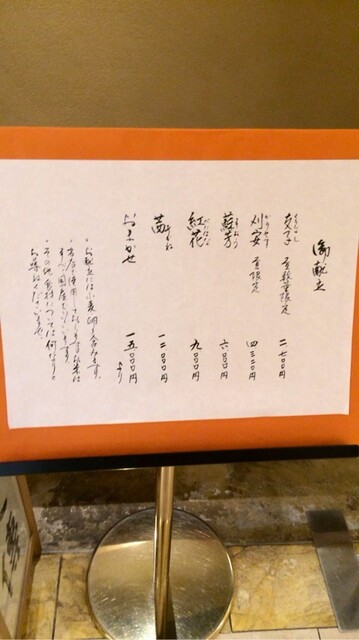 御献立
支子 昼数量限定 二七〇〇円
くちなし
刈安 昼限定 四三二〇円
かりやす
蘇芳 六〇〇〇円
すおう
紅花 九〇〇〇円
べにばな
茜 一二〇〇〇円
あかね
おまかせ 一五〇〇〇円
より
・お献立には小麦、卵を含みます。
・当店で使用しておりますお米は
すべて国産でございます。
・その他食材については何なりと
お尋ねくださいませ。